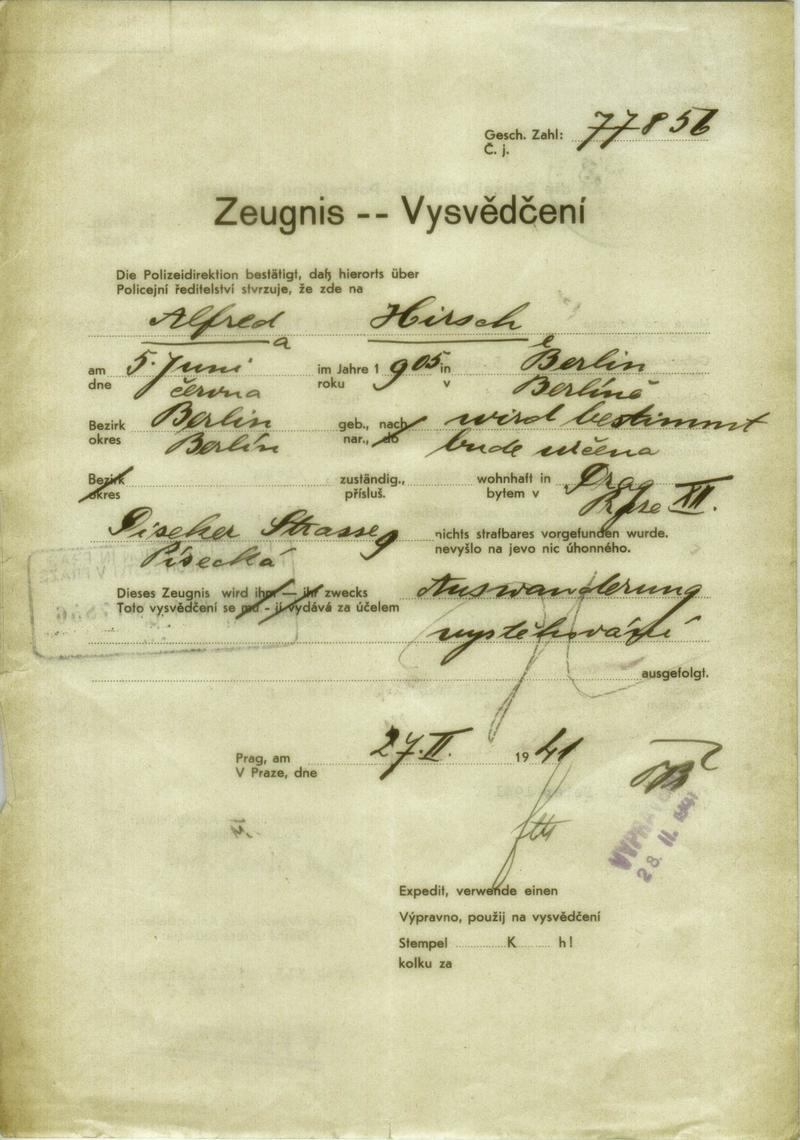 Gesch. Zahl: 77856
Č. j.
Zeugnis -- Vysvědčení
Die Polizeidirektion bestätigt, daß hierorts über
Policejní ředitelství stvrzuje, že zde na
Alfred a Hirsch e
am 5. Juni im Jahre 1905 in Berlin
dne června roku v Berlíně
Bezirk Berlin geb., nach wird bestimmt
okres Berlín nar., do bude určena
Bezirk zuständig., wohnhaft in Prag
okres přísluš. bytem v XII.
Piseker Strasse 9 nichts strafbares vorgefunden wurde.
Písecká nevyšlo na jevo nic úhonného.
Dieses Zeugnis wird ihm — ihr zwecks Auswanderung
Toto vysvědčení se mu - jí vydává za účelem
vystěhování
ausgefolgt.
Prag, am 27. II. 1941
V Praze, dne
28. II. 1941
Expedit, verwende einen
Výpravno, použij na vysvědčení
Stempel K h!
kolku za